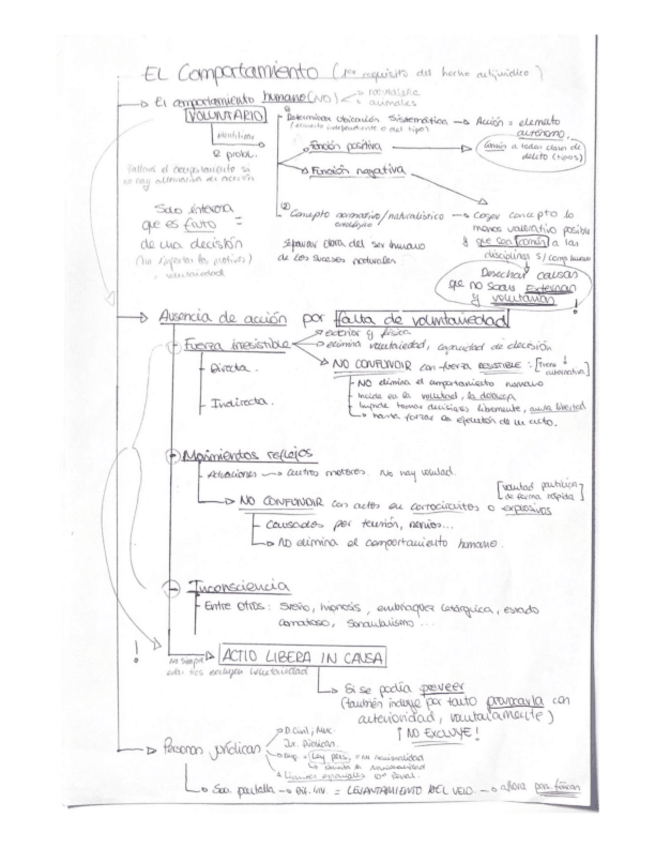 EL Comportamiento (1er requisito del hecho antijurídico)
El comportamiento humano (NO) naturaleza
animales
VOLUNTARIO
Determinar ubicación sistemática → Acción = elemento autónomo.
(elemento independiente o del tipo)
Función positiva
Común a todas clases de delito (tipos)
Función negativa
no hay alternativa de acción
② Concepto normativo/naturalístico → Coger concepto lo menos valorativo posible
ontológico
y que sea común a las disciplinas s/ comp. humano
Separar obra del ser humano
de los sucesos naturales
Solo interesa
que es fruto =
de una decisión
(no importan los motivos)
= voluntariedad
Desechar causas
que no sean externas
y voluntarias
!
Ausencia de acción por falta de voluntariedad
Fuerza irresistible
exterior y física
elimina voluntariedad, capacidad de decisión
NO CONFUNDIR con fuerza RESISTIBLE: [tiene alternativa]
Directa.
Indirecta.
NO elimina el comportamiento humano
Incide en la voluntad, la doblega
Impide tomar decisiones libremente, anula libertad
hasta forzar la ejecución de un acto.
Movimientos reflejos
Actuaciones → centros motores. No hay voluntad.
[voluntad participa de forma rápida]
NO CONFUNDIR con actos en cortocircuitos o explosivos
Causados por tensión, nervios...
NO elimina el comportamiento humano.
Inconsciencia
Entre otros: sueño, hipnosis, embriaguez letárgica, estado
comatoso, sonambulismo ...
!
No siempre
estas tres excluyen voluntariedad
ACTIO LIBERA IN CAUSA
Si se podía preveer
(también incluye por tanto provocarla con
anterioridad, voluntariamente)
¡NO EXCLUYE!
Personas jurídicas
D. Civil; Merc.
Ley pers. = nacionalidad
Soc. pantalla → = LEVANTAMIENTO DEL VELO. → ahora per. físicas